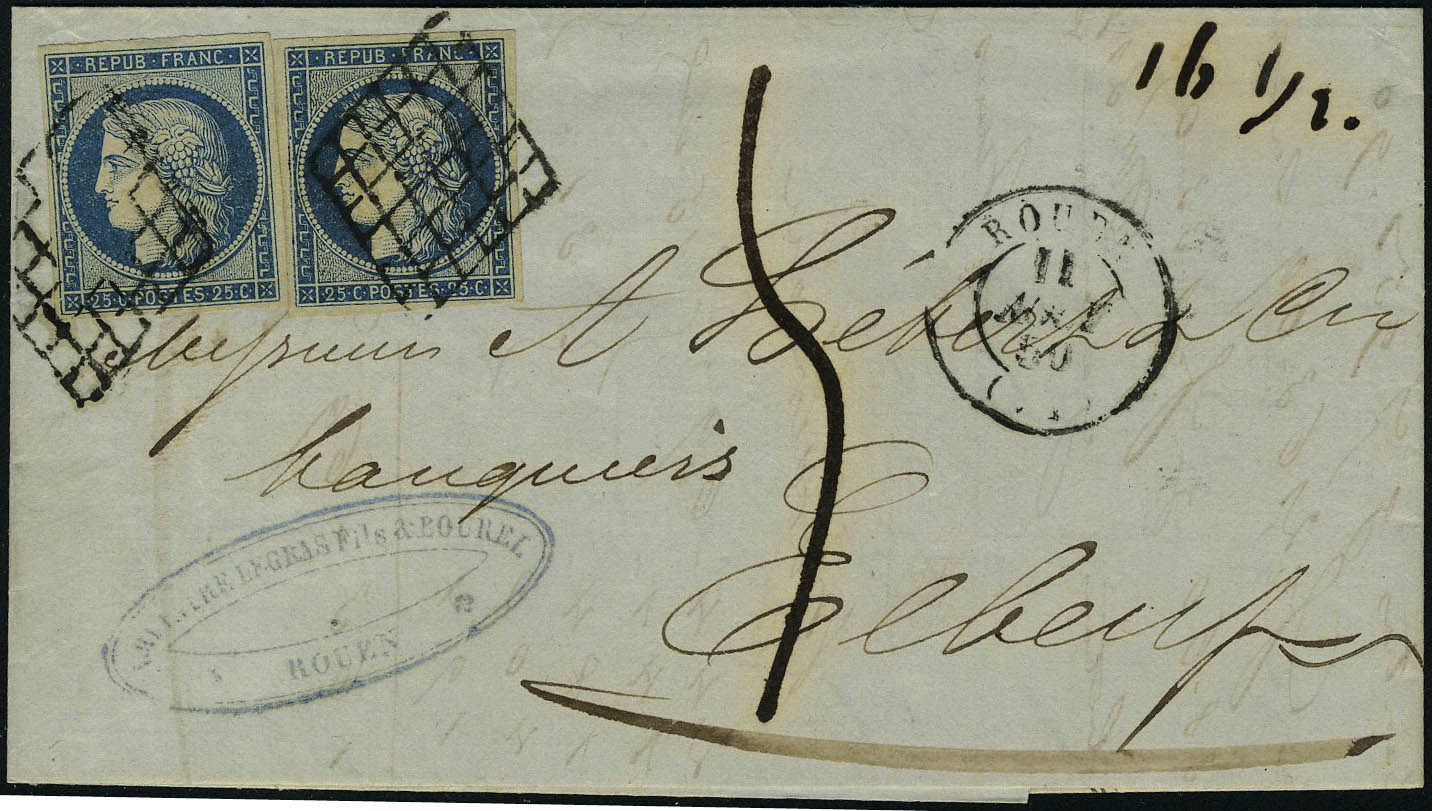 REPUB·FRANC·
25·C·POSTES·25·C·
REPUB·FRANC·
25·C·POSTES·25·C·
16 1/2.
ROUEN
11
50
A
banquiers
Elbeuf
LEGRAS Fils & BOUREL
ROUEN